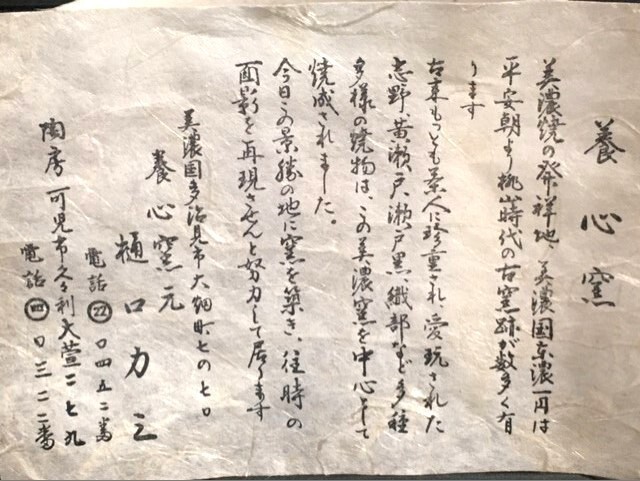 養心窯
美濃焼の発祥地、美濃国東濃一円は
平安朝より桃山時代の古窯跡が数多く有
ります
古来もっとも茶人に珍重され、愛玩された
志野、黄瀬戸、瀬戸黒、織部など多種
多様の焼物は、この美濃窯を中心として
焼成されました。
今日この景勝の地に窯を築き、往時の
面影を再現させんと努力して居ります
美濃国多治見市大畑町七の七〇
養心窯元
樋口力三
電話㉒〇四五二番
陶房 可児市久々利大萱一七九
電話㊃〇三一二番